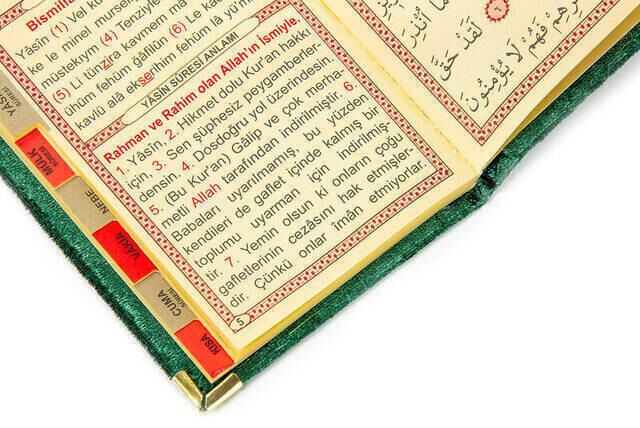 Bismilla
Yâsîn (1) Vel ku
ke le minel mursel
müstekıym (4) Tenziyle
(5) Li tünzira kavmem mâ
ühüm fehüm ğâfilûn (6) Le ka
kavlü alâ ekserihim fehüm lâ yü'mi
YÂSÎN SÛRESİ ANLAMI
Rahman ve Rahim olan Allah'ın ismiyle.
1. Yâsîn, 2. Hikmet dolu Kur'an hakkı
için, 3. Sen şüphesiz peygamberler-
densin. 4. Dosdoğru yol üzerindesin.
5. (Bu Kur'an) Gâlip ve çok merha-
metli Allah tarafından indirilmiştir. 6.
Babaları uyarılmamış, bu yüzden
kendileri de gaflet içinde kalmış bir
toplumu uyarman için indirilmiş-
tir. 7. Yemin olsun ki onların çoğu
gafletlerinin cezâsını hak etmişler-
dir. Çünkü onlar îmân etmiyorlar.
5
YÂSÎN
SÛRESİ
MÜLK
SÛRESİ
NEBE
VAKIA
CUMA
SÛRESİ
KISA
لَقَدْ حَقَّ
فَهُمْ لَا يُؤْمِنُونَ